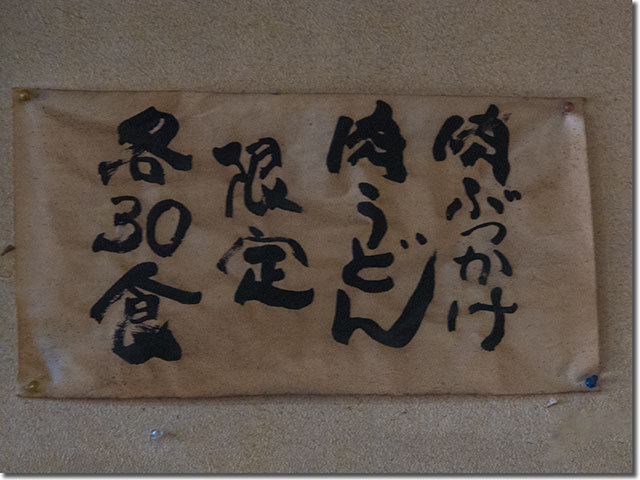 肉ぶっかけ
肉うどん
限定
各30食